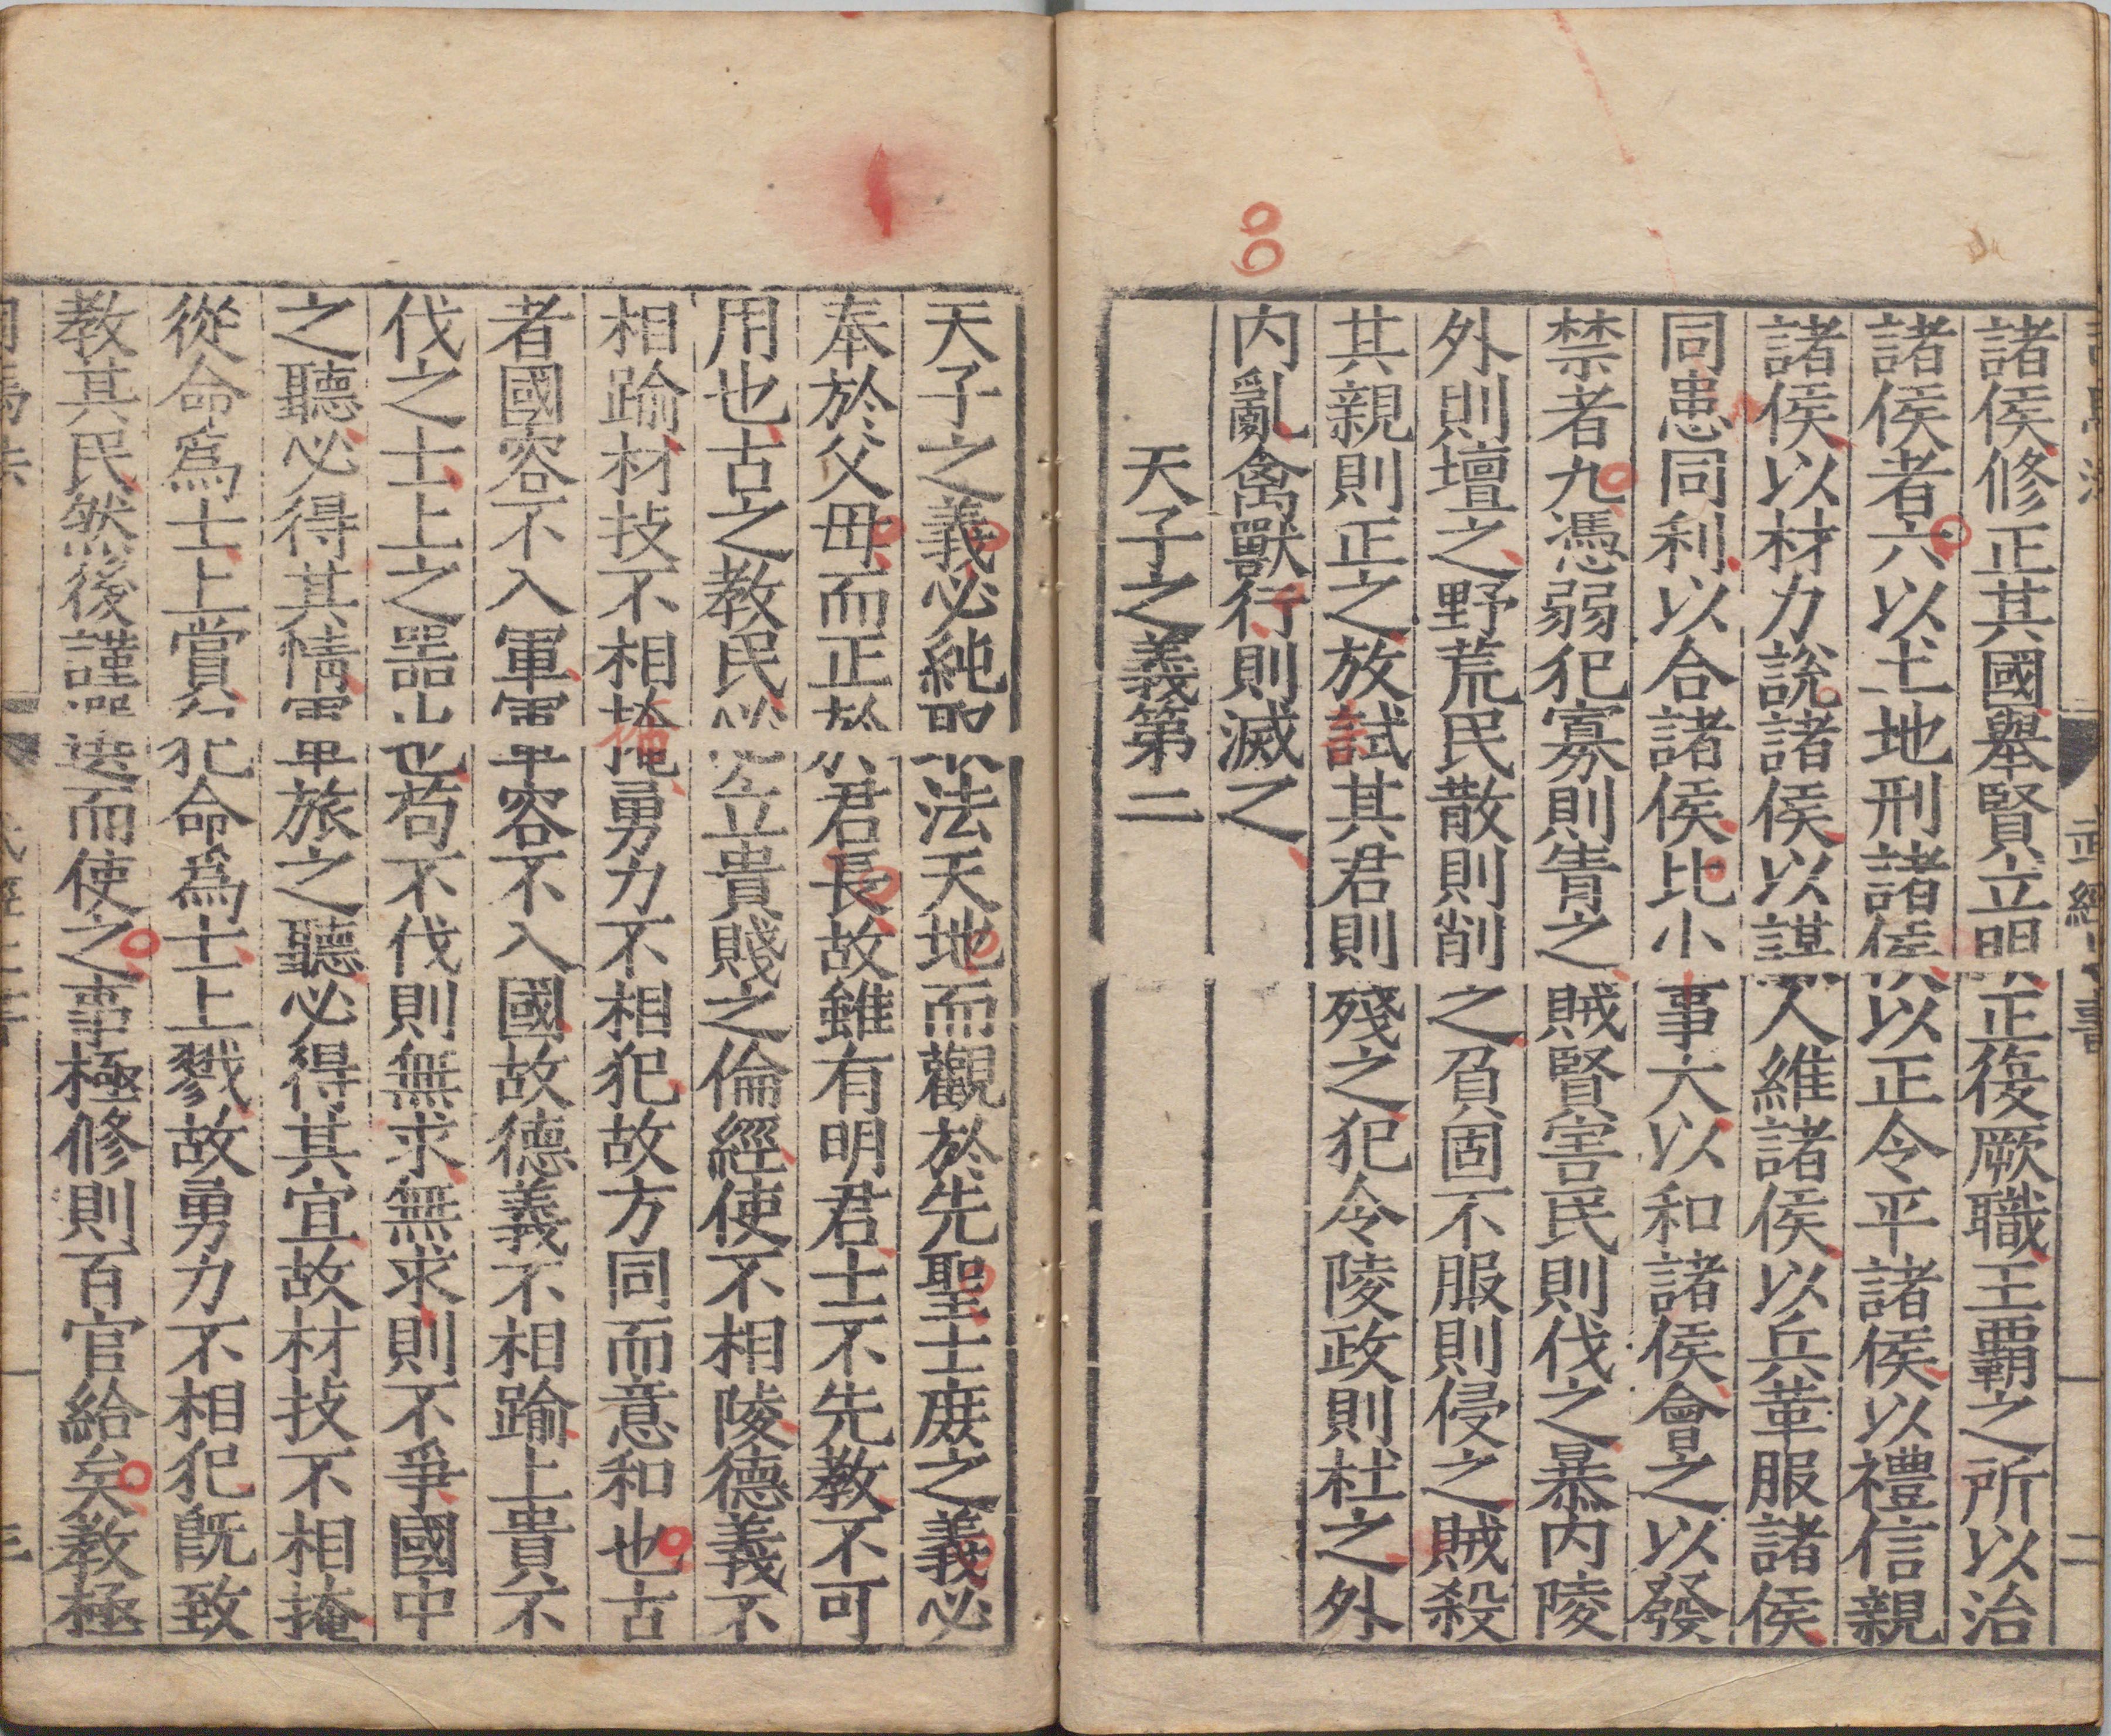 諸侯修正其國舉賢立明正復厥職王覇之所以治
諸侯者六以土地刑諸侯以正令平諸侯以禮信親
諸侯以材力說諸侯以謀人維諸侯以兵革服諸侯
同患同利以合諸侯比小事大以和諸侯會之以發
禁者九憑弱犯寡則眚之賊賢害民則伐之暴內陵
外則壇之野荒民散則削之負固不服則侵之賊殺
其親則正之放試其君則殘之犯令陵政則杜之外
內亂禽獸行則滅之
天子之義第二
天子之義必純取法天地而觀於先聖士庶之義必
奉於父母而正於君長故雖有明君士不先教不可
用也古之教民必立貴賤之倫經使不相陵德義不
相踰材技不相掩勇力不相犯故方同而意和也古
者國容不入軍軍容不入國故德義不相踰上貴不
伐之士上之器也苟不伐則無求無求則不爭國中
之聽必得其情軍旅之聽必得其宜故材技不相掩
從命爲士上賞犯命爲士上戮故勇力不相犯旣致
教其民然後謹選而使之事極修則百官給矣教極